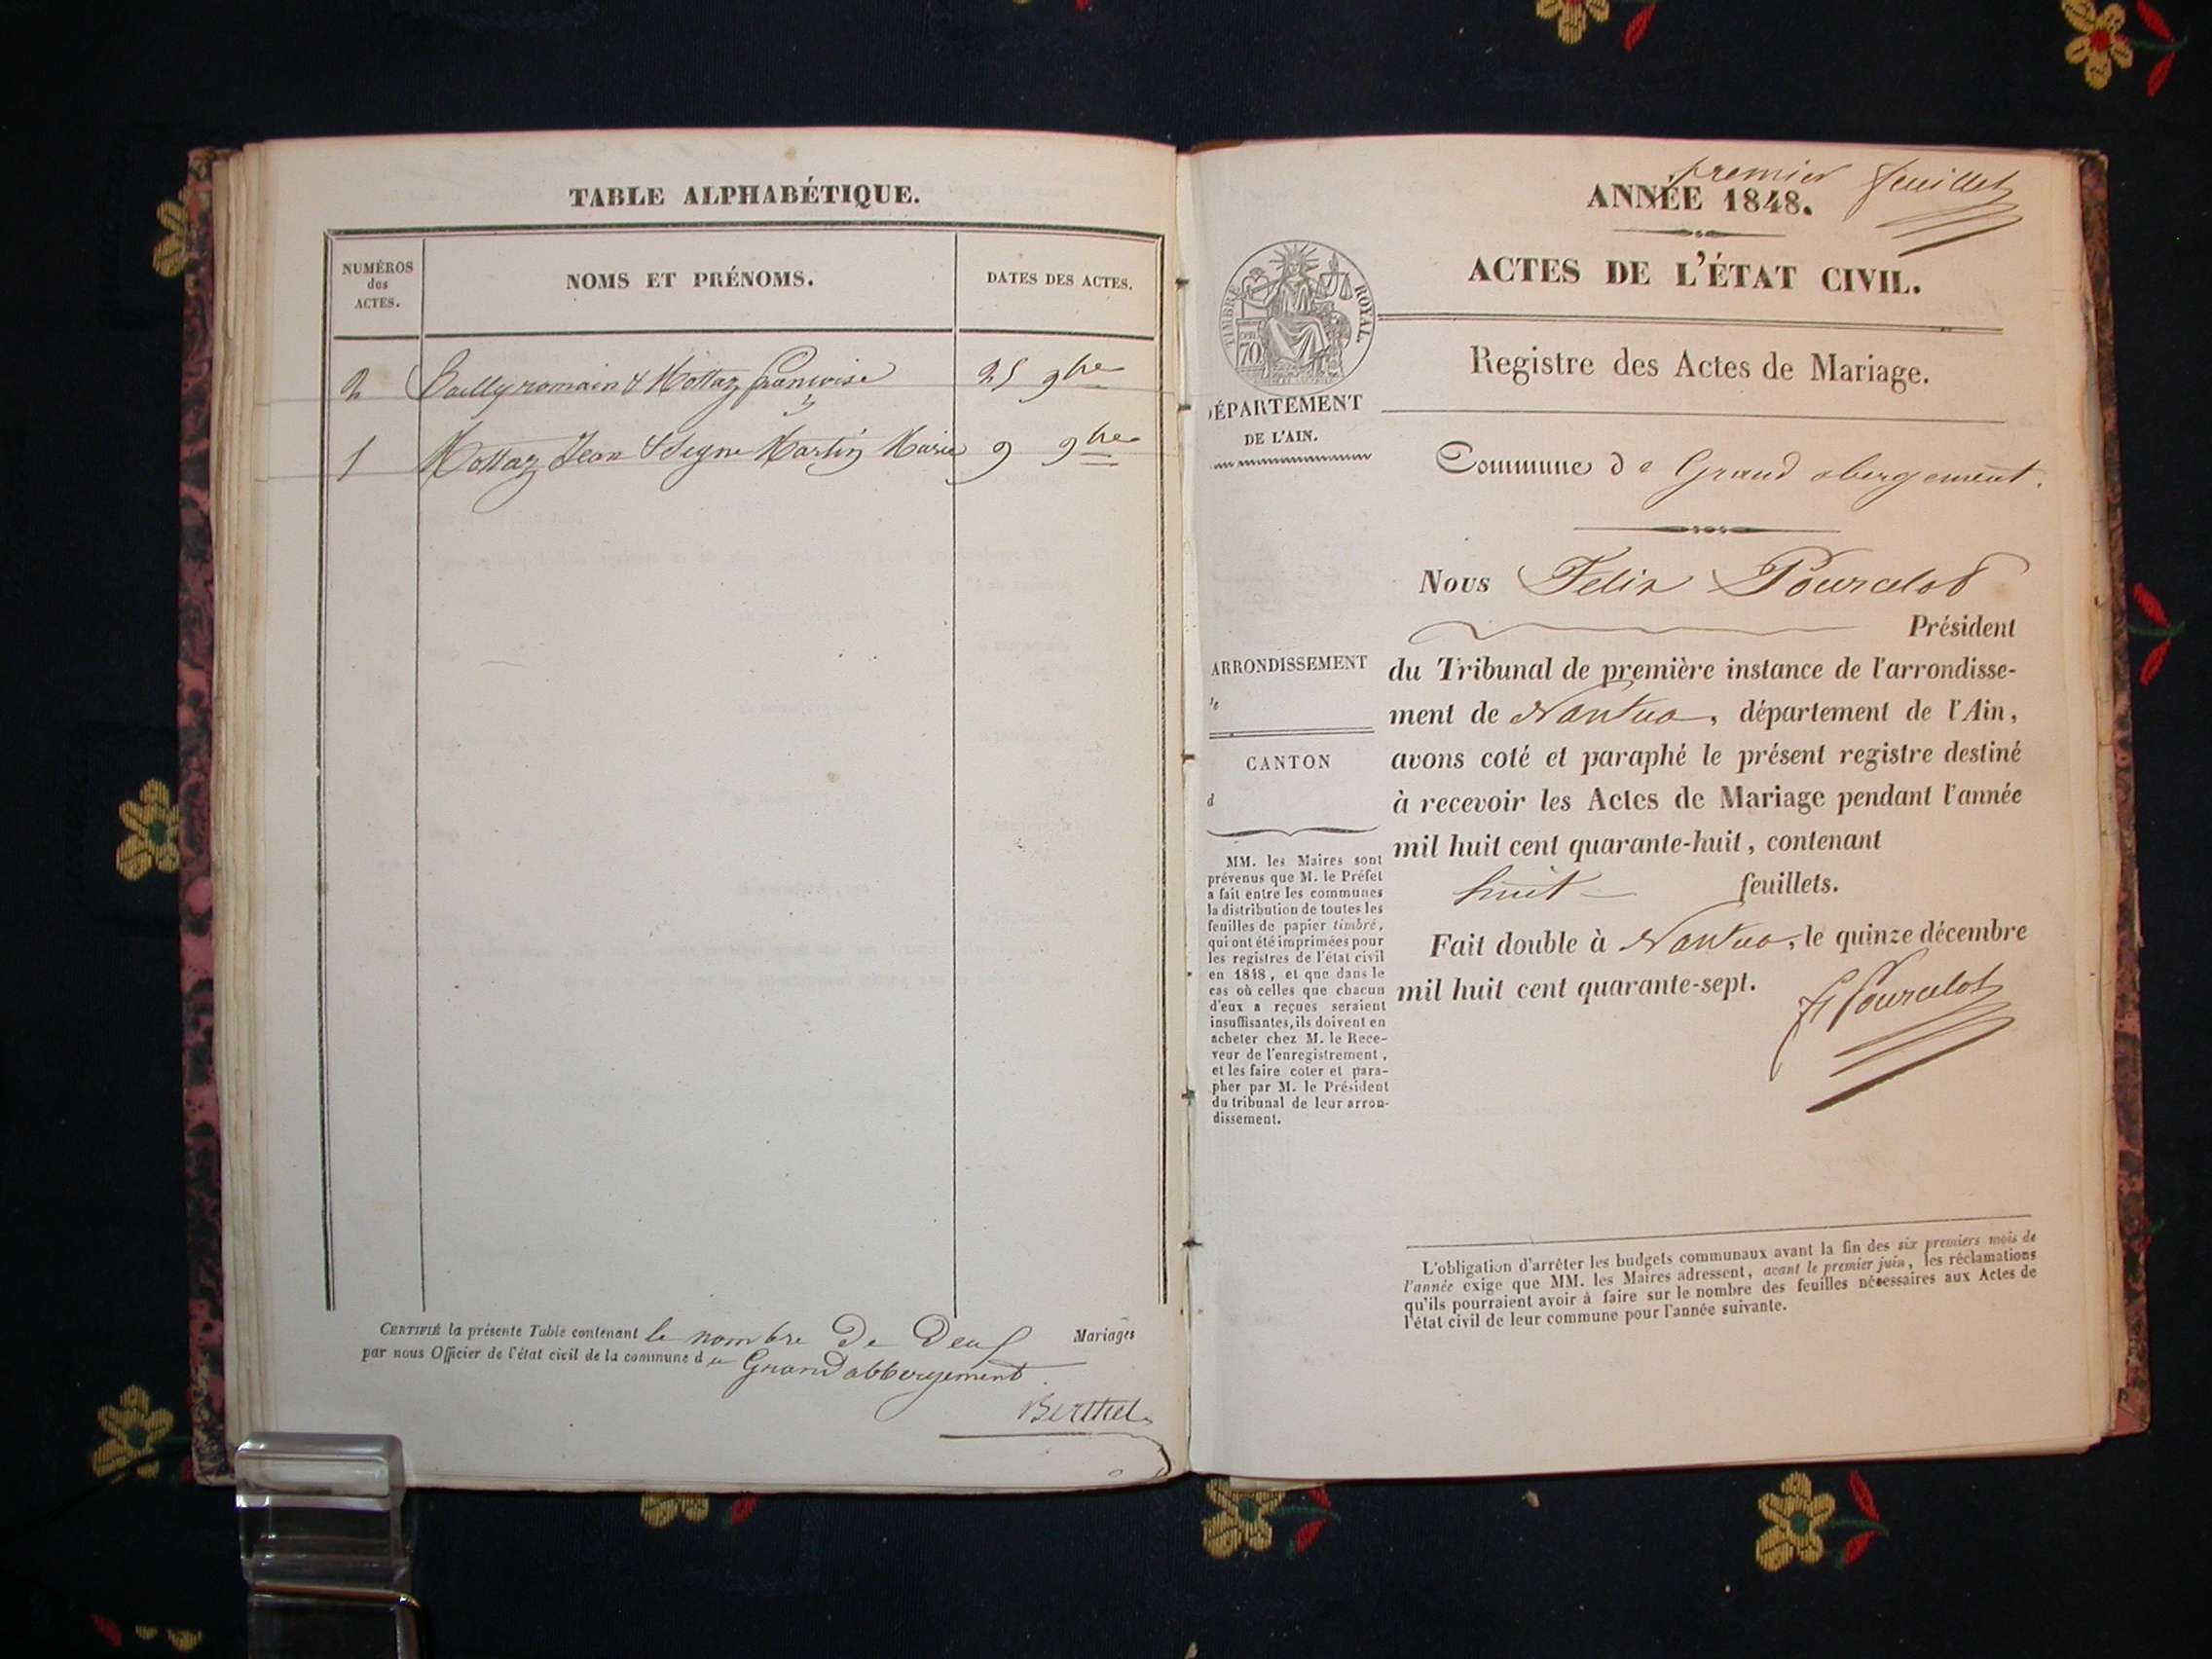 TABLE ALPHABÉTIQUE.
NUMÉROS
des
ACTES.
NOMS ET PRÉNOMS.
DATES DES ACTES.
2 Bailly romain & Mottaz françoise 25 9bre
1 Mottaz Jean & Seyne Martin Marie 9 9bre
CERTIFIÉ la présente Table contenant le nombre De Deux Mariages
par nous Officier de l'état civil de la commune du Grand abbergement
Berthet
premier feuillet
ANNÉE 1848.
ACTES DE L'ÉTAT CIVIL.
TIMBRE ROYAL
70
Registre des Actes de Mariage.
DÉPARTEMENT
DE L'AIN.
Commune de Grand abergement.
Nous Felix Pourcelot
Président
du Tribunal de première instance de l'arrondisse-
ment de Nantua, département de l'Ain,
avons coté et paraphé le présent registre destiné
à recevoir les Actes de Mariage pendant l'année
mil huit cent quarante-huit, contenant
huit feuillets.
Fait double à Nantua, le quinze décembre
mil huit cent quarante-sept.
F Pourcelot
ARRONDISSEMENT
de
CANTON
d
MM. les Maires sont
prévenus que M. le Préfet
a fait entre les communes
la distribution de toutes les
feuilles de papier timbré,
qui ont été imprimées pour
les registres de l'état civil
en 1848, et que dans le
cas où celles que chacun
d'eux a reçues seraient
insuffisantes, ils doivent en
acheter chez M. le Rece-
veur de l'enregistrement,
et les faire coter et para-
pher par M. le Président
du tribunal de leur arron-
dissement.
L'obligation d'arrêter les budgets communaux avant la fin des six premiers mois de
l'année exige que MM. les Maires adressent, avant le premier juin, les réclamations
qu'ils pourraient avoir à faire sur le nombre des feuilles nécessaires aux Actes de
l'état civil de leur commune pour l'année suivante.